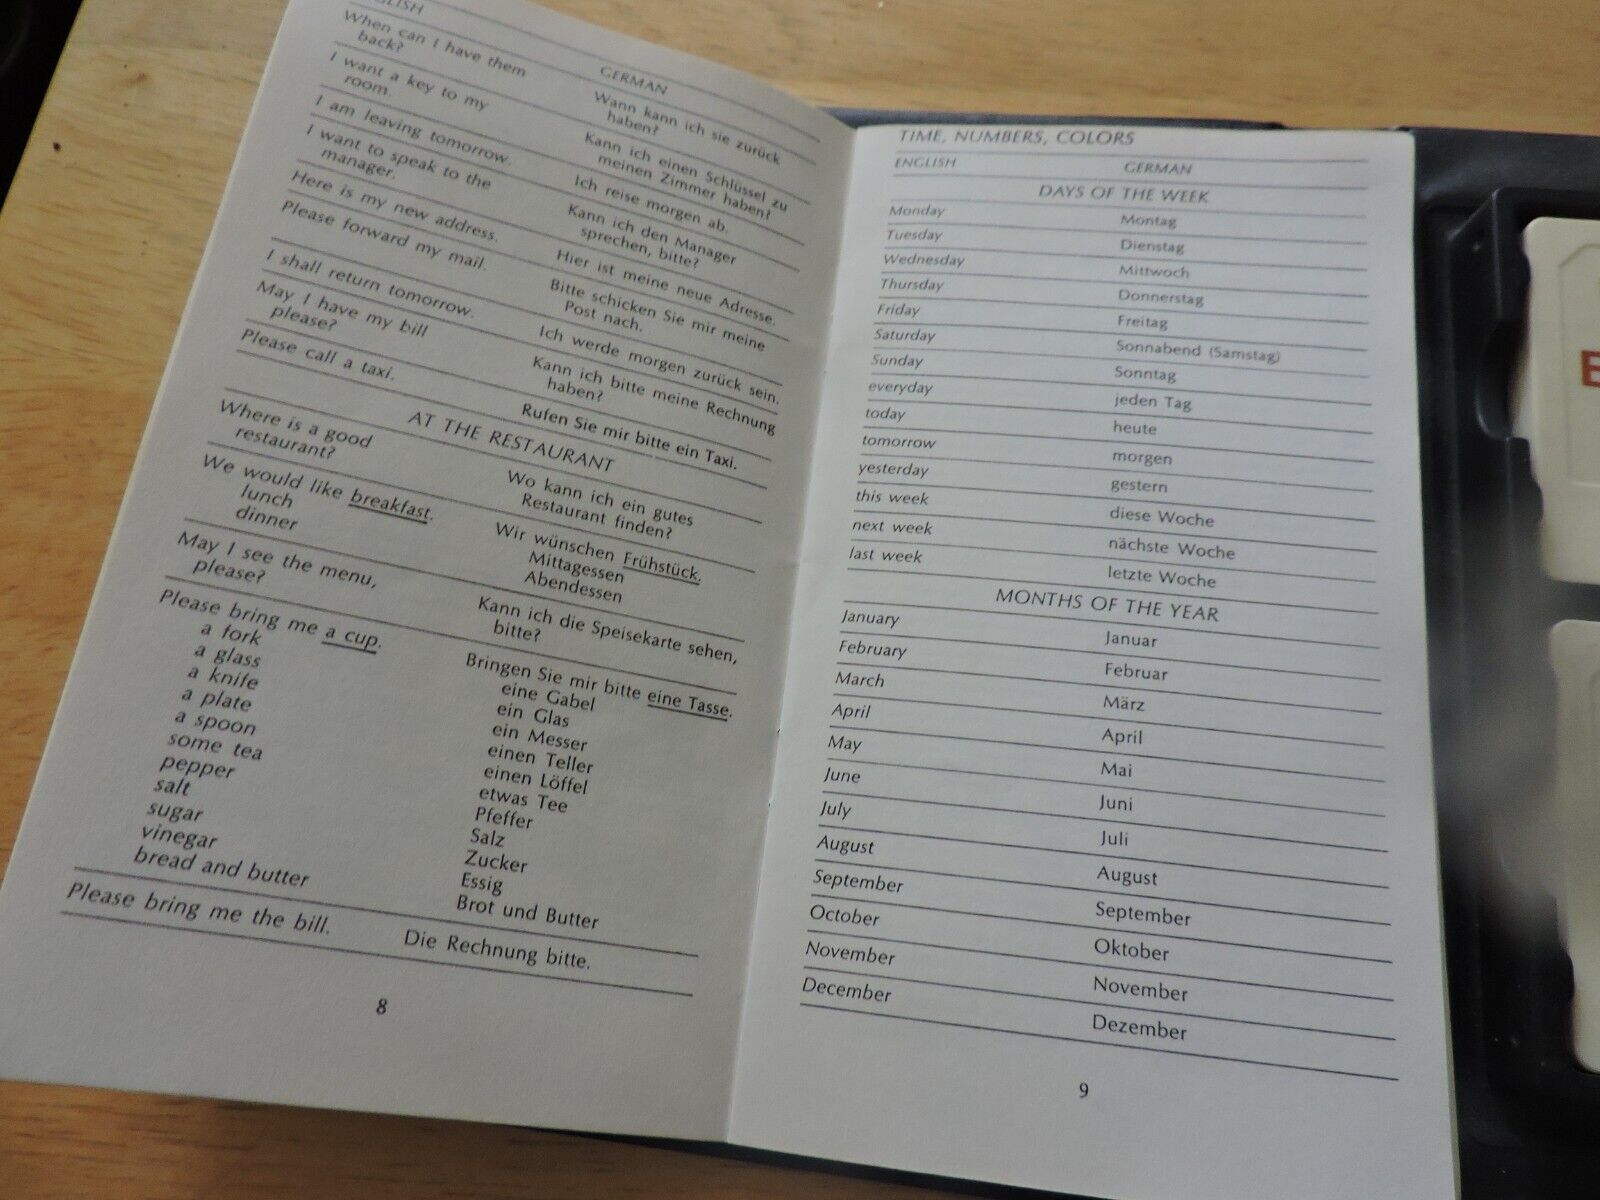 GERMAN
When can I have them
back?
Wann kann ich sie zurück
haben?
I want a key to my
room.
Kann ich einen Schlüssel zu
meinen Zimmer haben?
I am leaving tomorrow.
Ich reise morgen ab.
I want to speak to the
manager.
Kann ich den Manager
sprechen, bitte?
Here is my new address.
Hier ist meine neue Adresse.
Please forward my mail.
Bitte schicken Sie mir meine
Post nach.
I shall return tomorrow.
Ich werde morgen zurück sein.
May I have my bill
please?
Kann ich bitte meine Rechnung
haben?
Please call a taxi.
Rufen Sie mir bitte ein Taxi.
AT THE RESTAURANT
Where is a good
restaurant?
Wo kann ich ein gutes
Restaurant finden?
We would like breakfast.
lunch
dinner
Wir wünschen Frühstück.
Mittagessen
Abendessen
May I see the menu,
please?
Kann ich die Speisekarte sehen,
bitte?
Please bring me a cup.
a fork
a glass
a knife
a plate
a spoon
some tea
pepper
salt
sugar
vinegar
bread and butter
Bringen Sie mir bitte eine Tasse.
eine Gabel
ein Glas
ein Messer
einen Teller
einen Löffel
etwas Tee
Pfeffer
Salz
Zucker
Essig
Brot und Butter
Please bring me the bill.
Die Rechnung bitte.
8
TIME, NUMBERS, COLORS
ENGLISH GERMAN
DAYS OF THE WEEK
Monday Montag
Tuesday Dienstag
Wednesday Mittwoch
Thursday Donnerstag
Friday Freitag
Saturday Sonnabend (Samstag)
Sunday Sonntag
everyday jeden Tag
today heute
tomorrow morgen
yesterday gestern
this week diese Woche
next week nächste Woche
last week letzte Woche
MONTHS OF THE YEAR
January Januar
February Februar
March März
April April
May Mai
June Juni
July Juli
August August
September September
October Oktober
November November
December Dezember
9